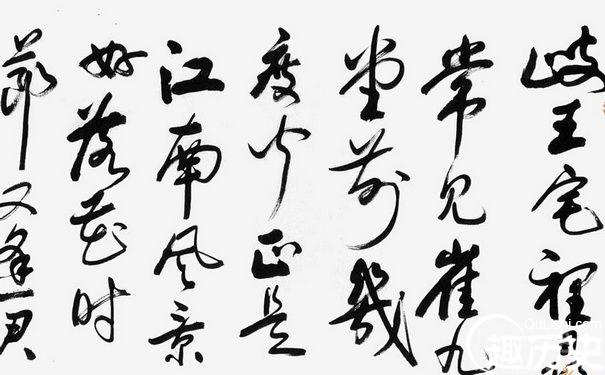 岐王宅裡尋
常见崔九
堂前幾
度闻正是
江南风景
好落花时
節又逢君
QuLishi.com
趣历史